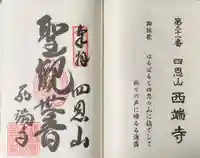 第三十一番
四恩山
西端寺
御詠歌
はるばると四恩の山に詣でして
祈りの声に晴るる海霧
奉拝
四恩山
聖観世音
西端寺